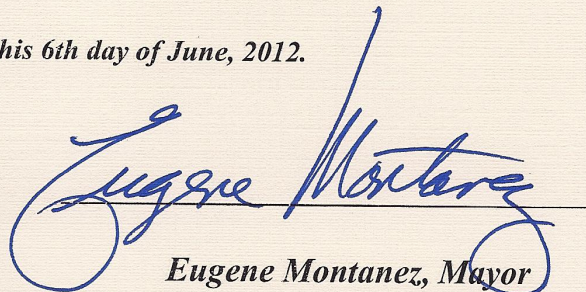 his 6th day of June, 2012.
Eugene Montanez
Eugene Montanez, Mayor